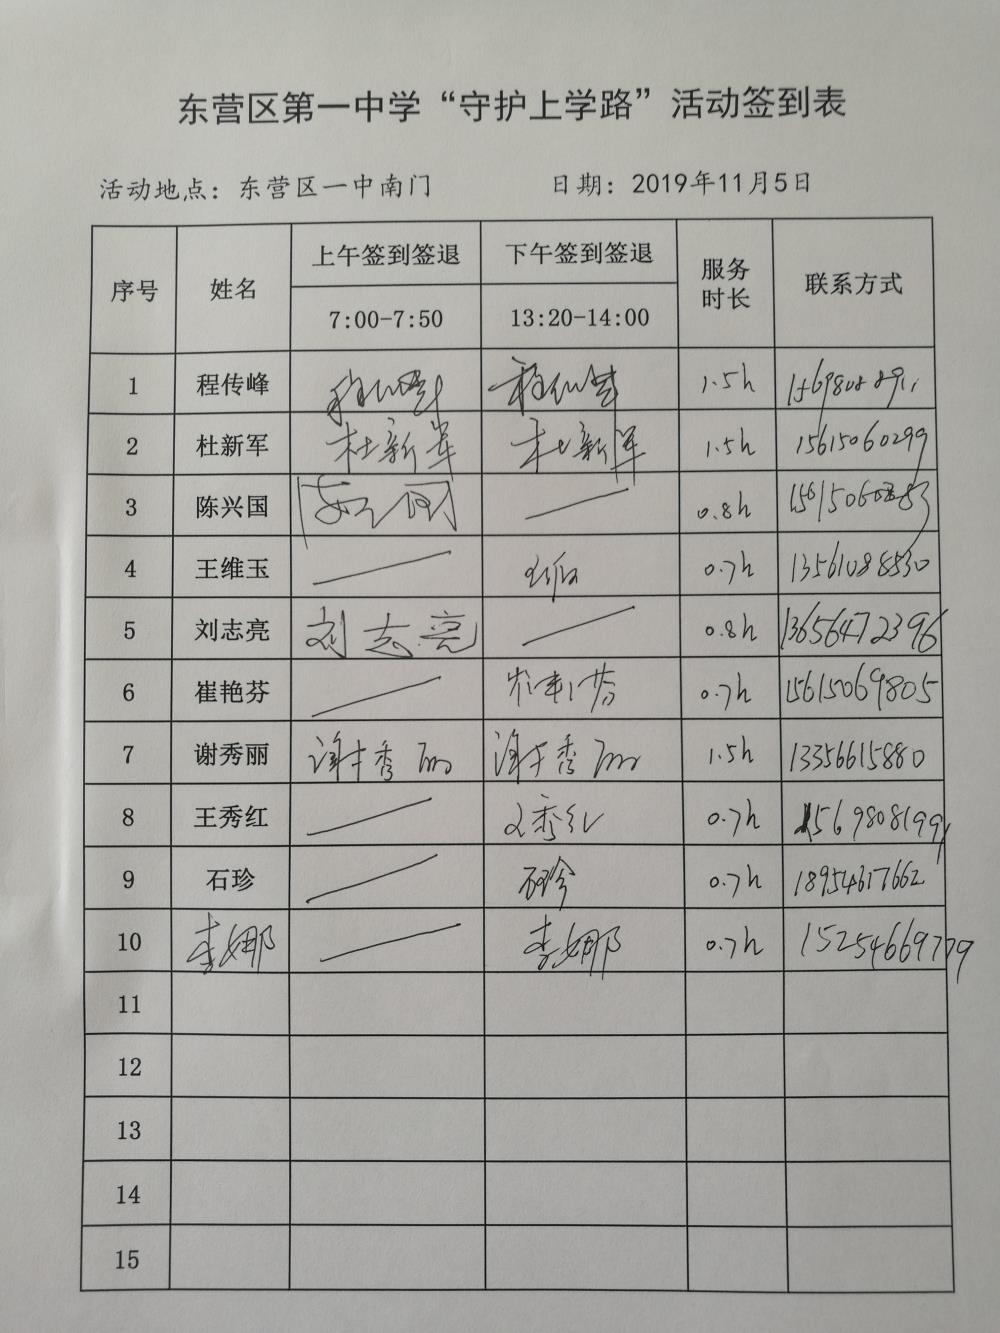 东营区第一中学“守护上学路”活动签到表
活动地点：东营区一中南门 日期：2019年11月5日
序号 姓名 上午签到签退 下午签到签退 服务时长 联系方式
7:00-7:50 13:20-14:00
1 程传峰 1.5h
2 杜新军 杜新军 杜新军 1.5h 15615060299
3 陈兴国 — 0.8h
4 王维玉 — 0.7h 13561088530
5 刘志亮 刘志亮 — 0.8h 13656472396
6 崔艳芬 — 崔艳芬 0.7h 15615069805
7 谢秀丽 谢秀丽 谢秀丽 1.5h 13356615880
8 王秀红 — 王秀红 0.7h 15698081991
9 石珍 — 石珍 0.7h 18954617662
10 李娜 — 李娜 0.7h 15254669779
11
12
13
14
15